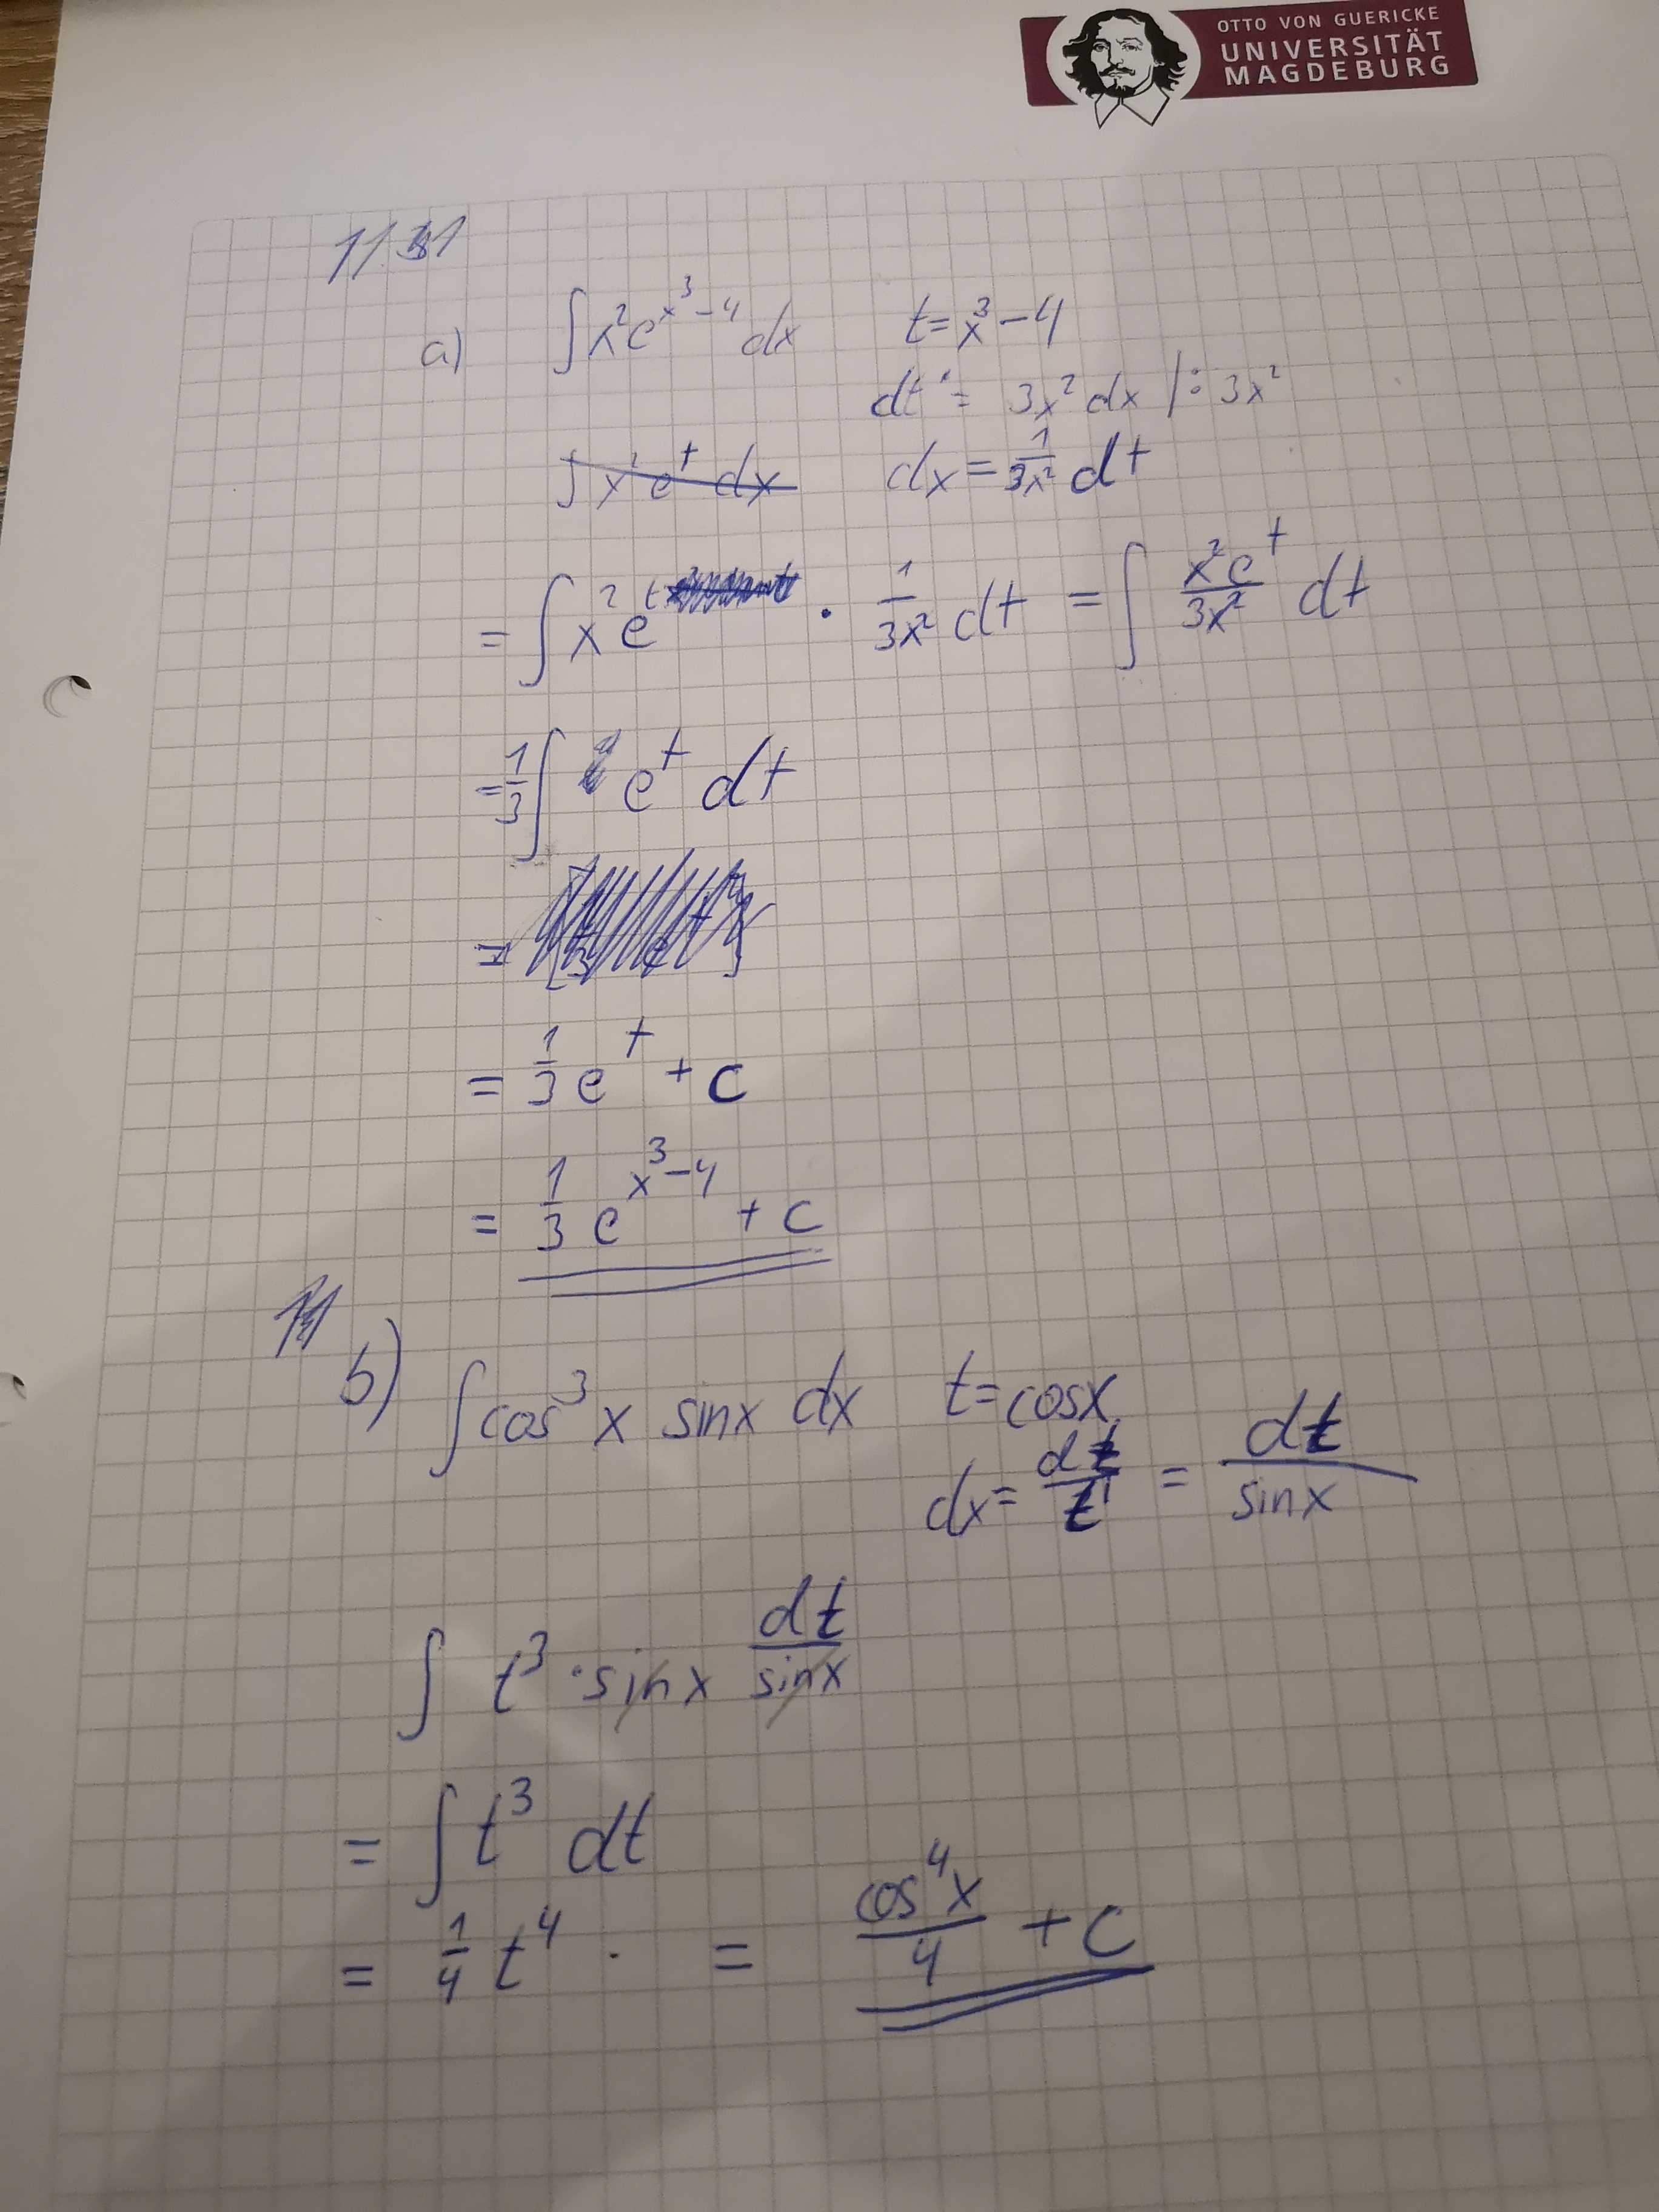 OTTO VON GUERICKE
UNIVERSITÄT
MAGDEBURG
a) ∫x²e^(x³-4) dx t = x³-4
dt = 3x² dx |: 3x²
∫x²e^t dx dx = 1/(3x²) dt
= ∫x²e^t · 1/(3x²) dt = ∫ (x²e^t)/(3x²) dt
= 1/3 ∫ e^t dt
=
= 1/3 e^t + c
= 1/3 e^(x³-4) + c
b) ∫cos³x sinx dx t = cosx
dx = dt/t' = dt/sinx
∫ t³ · sinx dt/sinx
= ∫t³ dt
= 1/4 t⁴ · = cos⁴x/4 + c